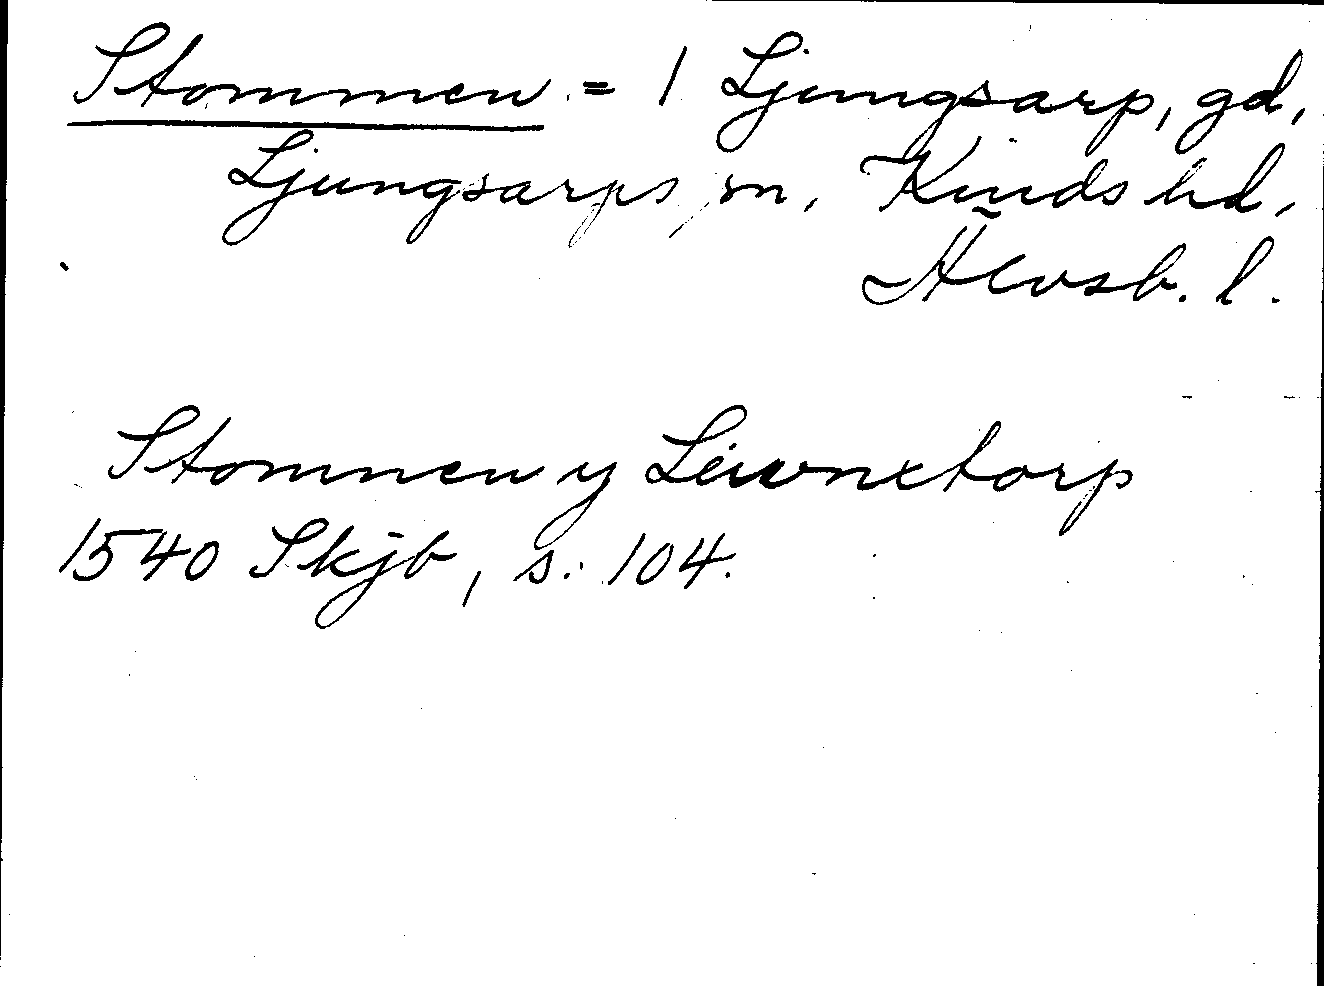 Stommen = 1 Ljungsarp, gd,
Ljungsarps sn, Kinds hd,
Älvsb. l.
Stommen y Lewnetorp
1540 Skjb, s. 104.